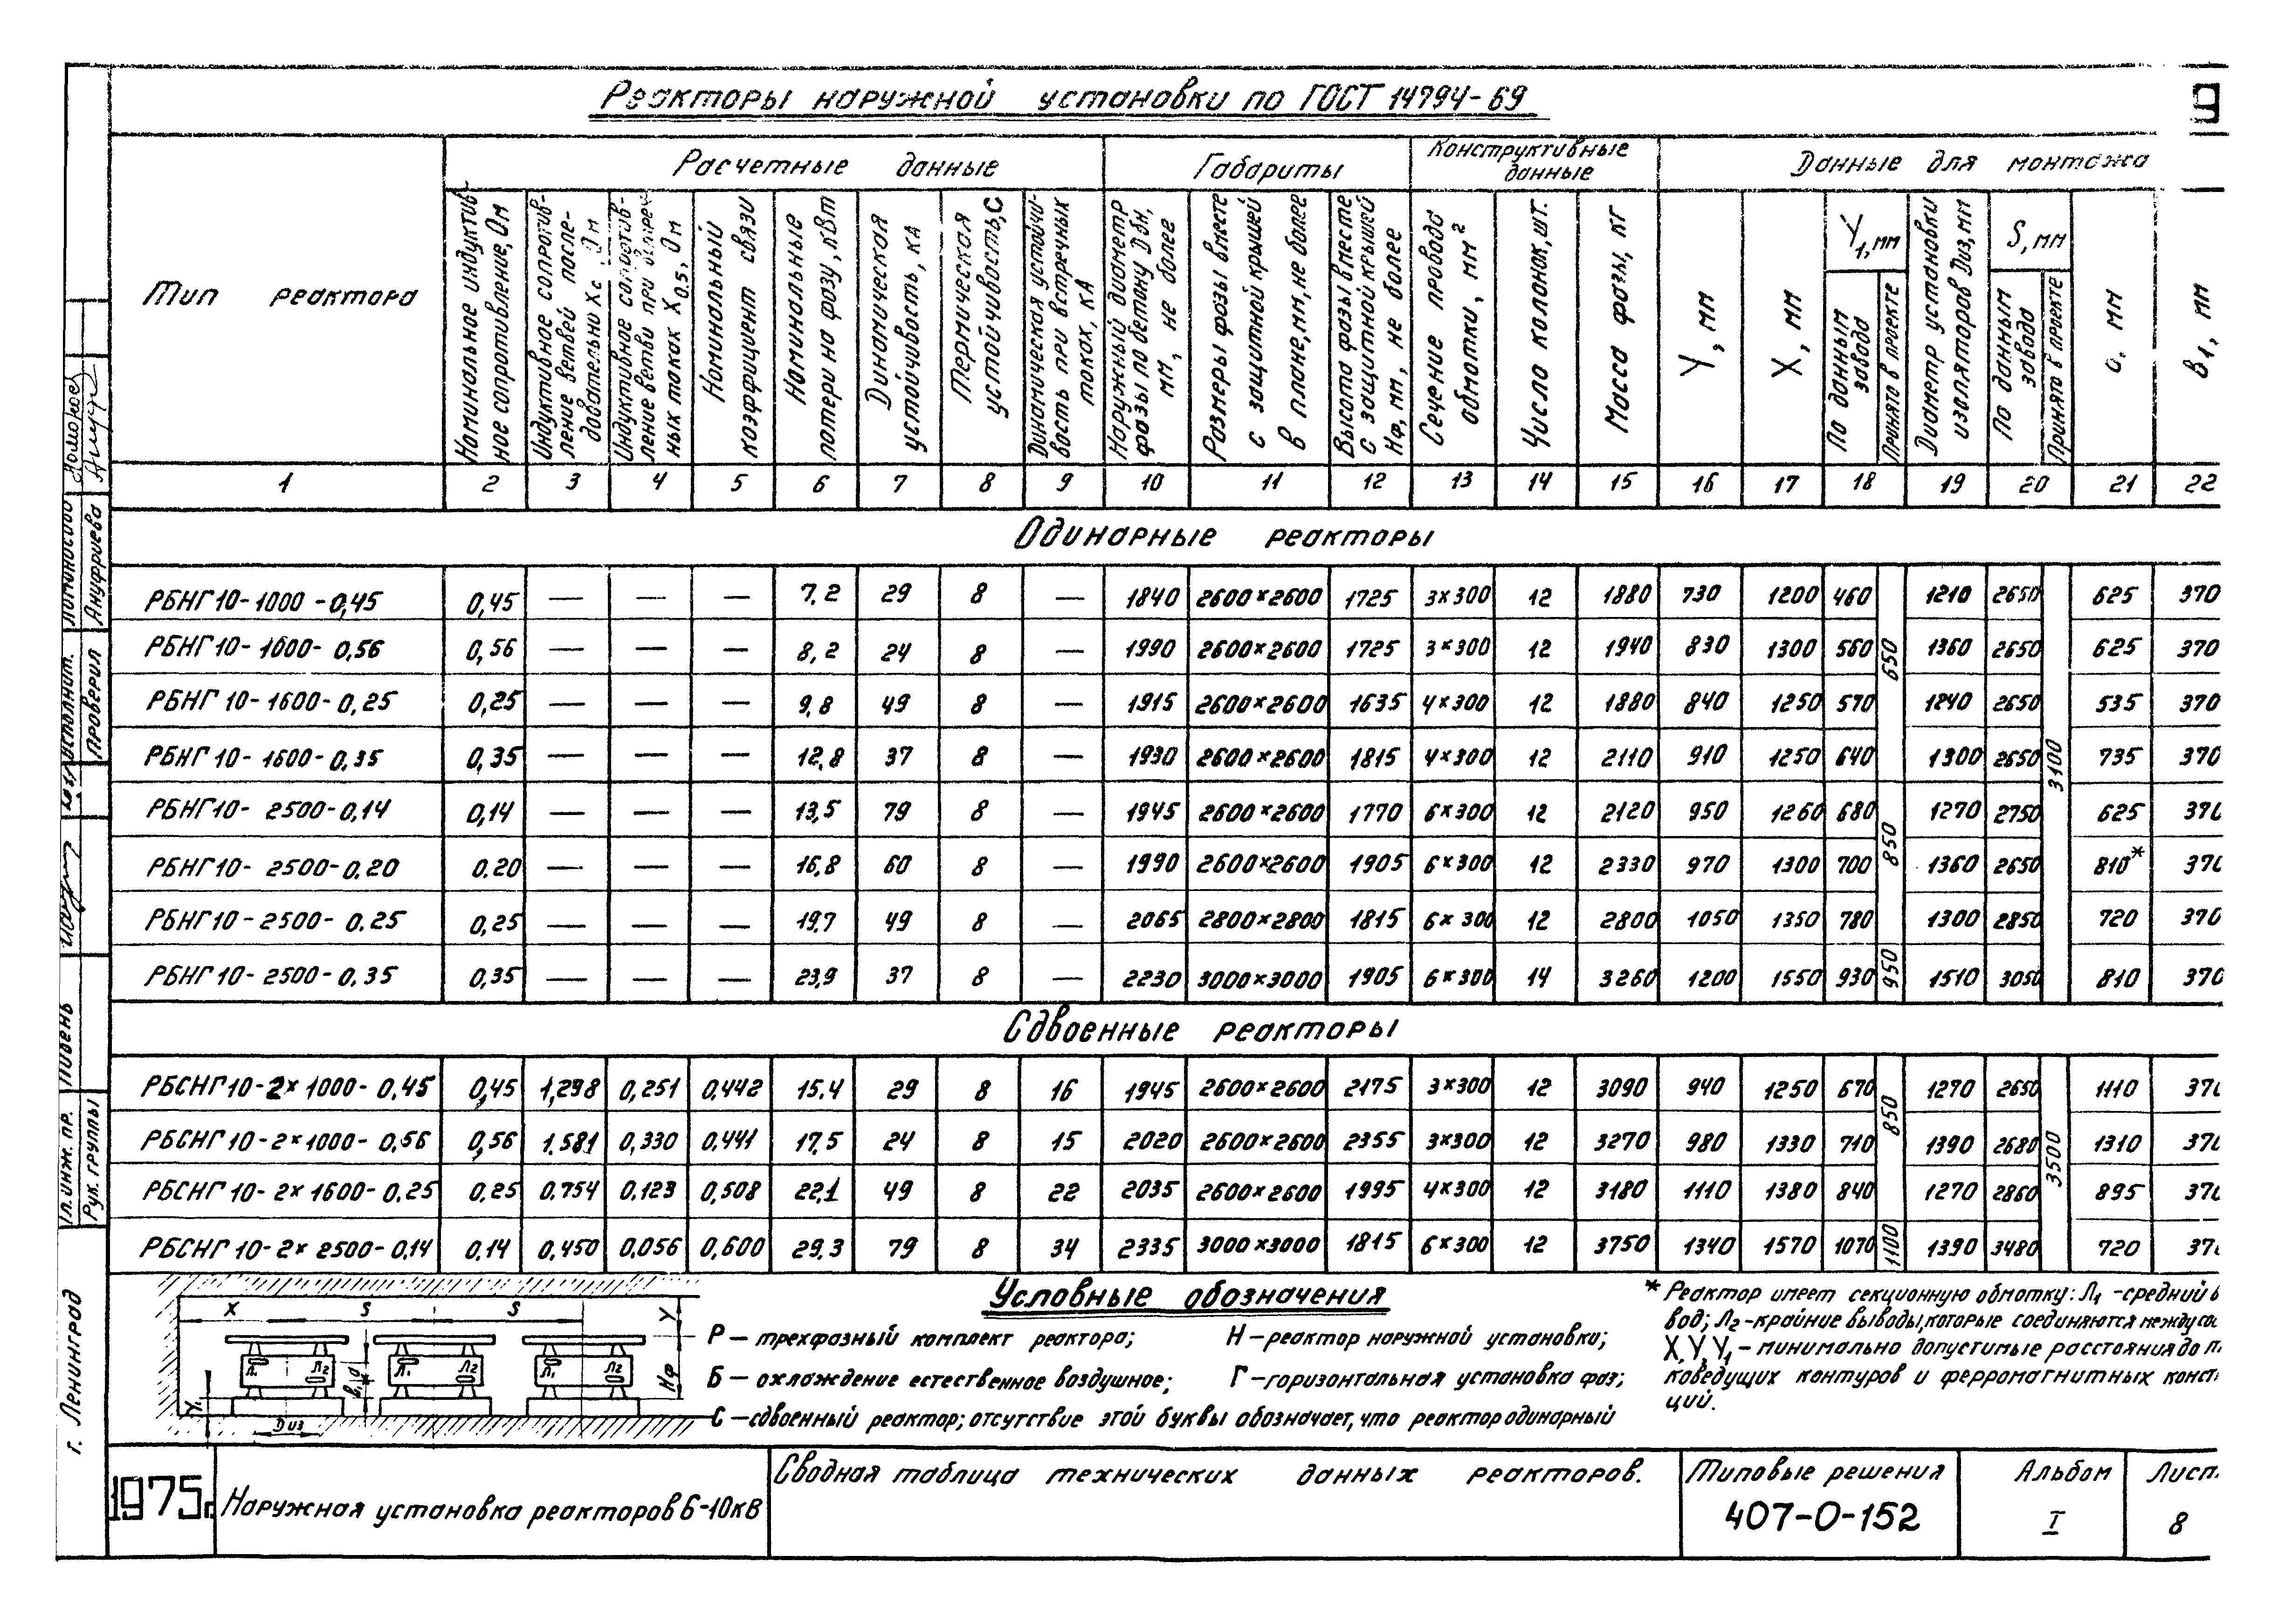 Реакторы наружной установки по ГОСТ 14794-69
9
Тип реактора
Расчетные данные
Габариты
Конструктивные данные
Данные для монтажа
Номинальное индуктив-
ное сопротивление, Ом
Индуктивное сопротив-
ление ветвей после-
довательно Xс, Ом
Индуктивное сопротив-
ление ветви при встреч-
ных токах X0.5, Ом
Номинальный
коэффициент связи
Номинальные
потери на фазу, кВт
Динамическая
устойчивость, кА
Термическая
устойчивость, С
Динамическая устойчи-
вость при встречных
токах, кА
Наружный диаметр
фазы по бетону Dбн,
мм, не более
Размеры фазы вместе
с защитной крышей
в плане, мм, не более
Высота фазы вместе
с защитной крышей
Нф, мм, не более
Сечение провода
обмотки, мм²
Число колонок, шт.
Масса фазы, кг
Y, мм
X, мм
Y1, мм
По данным завода
Принято в проекте
Диаметр установки
изоляторов Dиз, мм
S, мм
По данным завода
Принято в проекте
а, мм
в1, мм
1 2 3 4 5 6 7 8 9 10 11 12 13 14 15 16 17 18 19 20 21 22
Одинарные реакторы
РБНГ 10-1000-0,45 0,45 — — — 7,2 29 8 — 1840 2600×2600 1725 3×300 12 1880 730 1200 460 1210 2650 625 370
РБНГ 10-1000-0,56 0,56 — — — 8,2 24 8 — 1990 2600×2600 1725 3×300 12 1940 830 1300 560 650 1360 2650 625 370
РБНГ 10-1600-0,25 0,25 — — — 9,8 49 8 — 1915 2600×2600 1635 4×300 12 1880 840 1250 570 1240 2650 535 370
РБНГ 10-1600-0,35 0,35 — — — 12,8 37 8 — 1930 2600×2600 1815 4×300 12 2110 910 1250 640 1300 2650 3100 735 370
РБНГ 10-2500-0,14 0,14 — — — 13,5 79 8 — 1945 2600×2600 1770 6×300 12 2120 950 1260 680 1270 2750 625 370
РБНГ 10-2500-0,20 0.20 — — — 16,8 60 8 — 1990 2600×2600 1905 6×300 12 2330 970 1300 700 850 1360 2650 810* 370
РБНГ 10-2500-0,25 0,25 — — — 19,7 49 8 — 2065 2800×2800 1815 6×300 12 2800 1050 1350 780 1300 2850 720 370
РБНГ 10-2500-0,35 0,35 — — — 23,9 37 8 — 2230 3000×3000 1905 6×300 14 3260 1200 1550 930 950 1510 3050 810 370
Сдвоенные реакторы
РБСНГ 10-2×1000-0,45 0,45 1,298 0,251 0,442 15.4 29 8 16 1945 2600×2600 2175 3×300 12 3090 940 1250 670 850 1270 2650 1110 370
РБСНГ 10-2×1000-0,56 0,56 1.581 0,330 0,441 17,5 24 8 15 2020 2600×2600 2355 3×300 12 3270 980 1330 710 1390 2680 3500 1310 370
РБСНГ 10-2×1600-0,25 0,25 0.754 0.123 0,508 22,1 49 8 22 2035 2600×2600 1995 4×300 12 3180 1110 1380 840 1270 2860 895 370
РБСНГ 10-2×2500-0,14 0,14 0,450 0,056 0,600 29,3 79 8 34 2335 3000×3000 1815 6×300 12 3750 1340 1570 1070 1100 1390 3480 720 370
X S S Y
Л1 Л2 Л1 Л2 Л1 Л2
Нф
в1 а
Y1
Dиз
Условные обозначения
Р — трехфазный комплект реактора; Н — реактор наружной установки;
Б — охлаждение естественное воздушное; Г — горизонтальная установка фаз;
С — сдвоенный реактор; отсутствие этой буквы обозначает, что реактор одинарный
* Реактор имеет секционную обмотку: Л1 - средний в
вод; Л2 - крайние выводы, которые соединяются между со
X, Y, Y1 - минимально допустимые расстояния до т
коведущих контуров и ферромагнитных конст
ций.
1975г.
Наружная установка реакторов 6-10кВ
Сводная таблица технических данных реакторов.
Типовые решения
407-0-152
Альбом
I
Лист
8
г. Ленинград
Гл. инж. пр.
Рук. группы
Пивень
Исполнит.
Проверил
Ануфриева